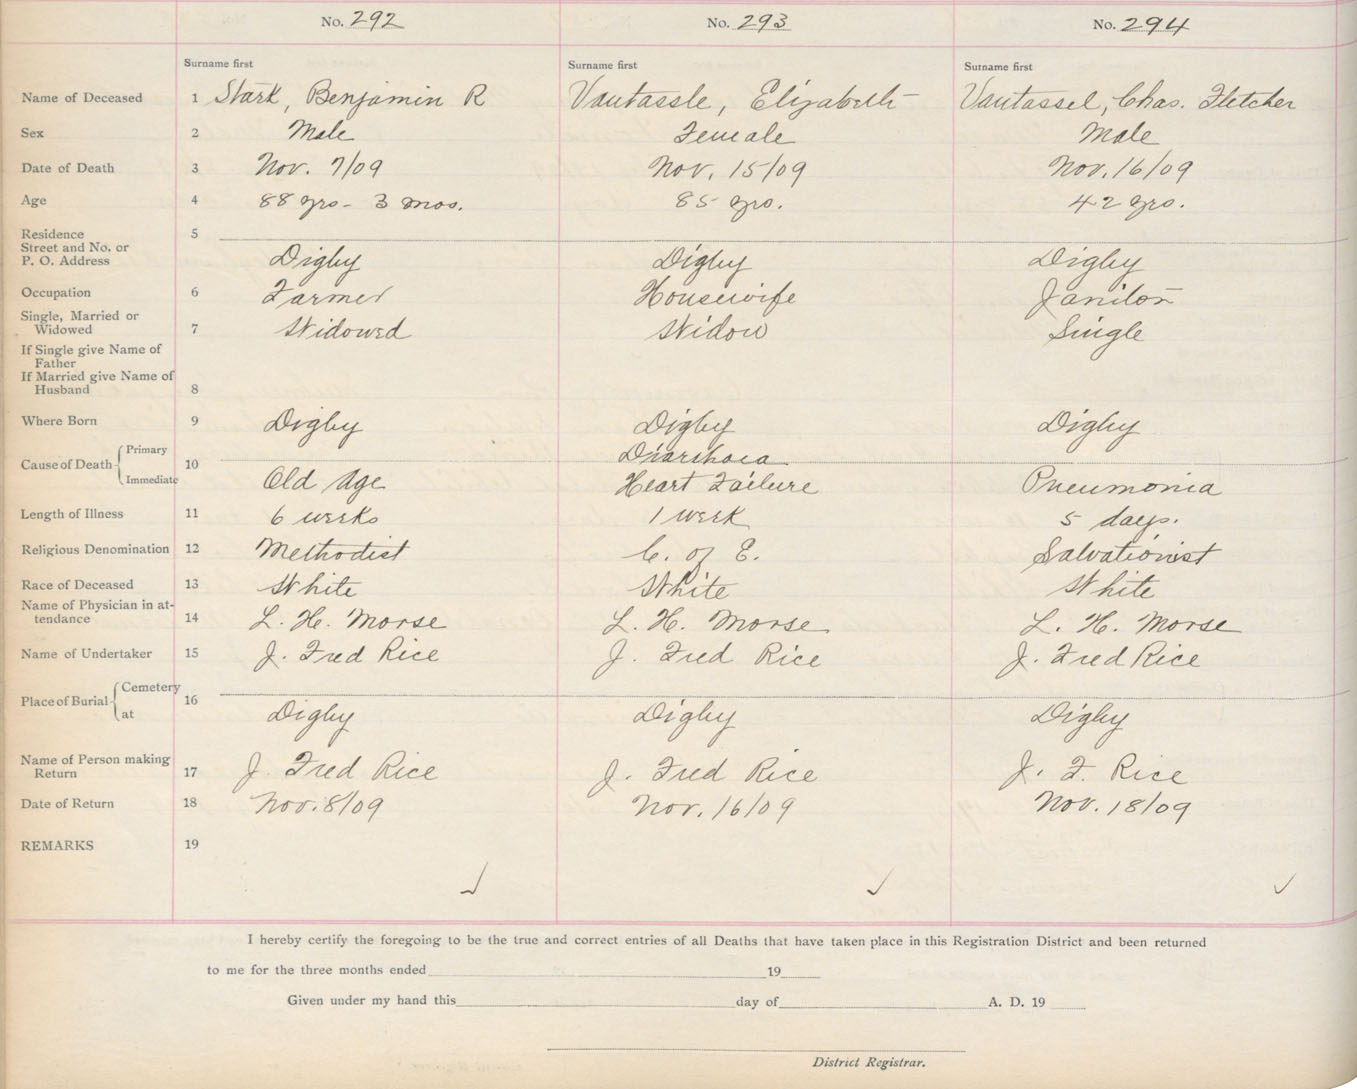 No. 292 No. 293 No. 294
Surname first Surname first Surname first
Name of Deceased 1 Stark, Benjamin R Vantassle, Elizabeth Vantassel, Chas. Fletcher
Sex 2 Male Female Male
Date of Death 3 Nov. 7/09 Nov. 15/09 Nov. 16/09
Age 4 88 yrs - 3 mos. 85 yrs. 42 yrs.
Residence 5
Street and No. or
P. O. Address Digby Digby Digby
Occupation 6 Farmer Housewife Janitor
Single, Married or
Widowed 7 Widowed Widow Single
If Single give Name of
Father
If Married give Name of
Husband 8
Where Born 9 Digby Digby Digby
Primary Diarshoea
Cause of Death 10
Immediate Old Age Heart Failure Pneumonia
Length of Illness 11 6 weeks 1 week 5 days.
Religious Denomination 12 Methodist C. of E. Salvationist
Race of Deceased 13 White White White
Name of Physician in at-
tendance 14 L. H. Morse L. H. Morse L. H. Morse
Name of Undertaker 15 J. Fred Rice J. Fred Rice J. Fred Rice
Cemetery
Place of Burial 16
at Digby Digby Digby
Name of Person making
Return 17 J. Fred Rice J. Fred Rice J. F. Rice
Date of Return 18 Nov. 8/09 Nov. 16/09 Nov. 18/09
REMARKS 19
I hereby certify the foregoing to be the true and correct entries of all Deaths that have taken place in this Registration District and been returned
to me for the three months ended 19
Given under my hand this day of A. D. 19
District Registrar.